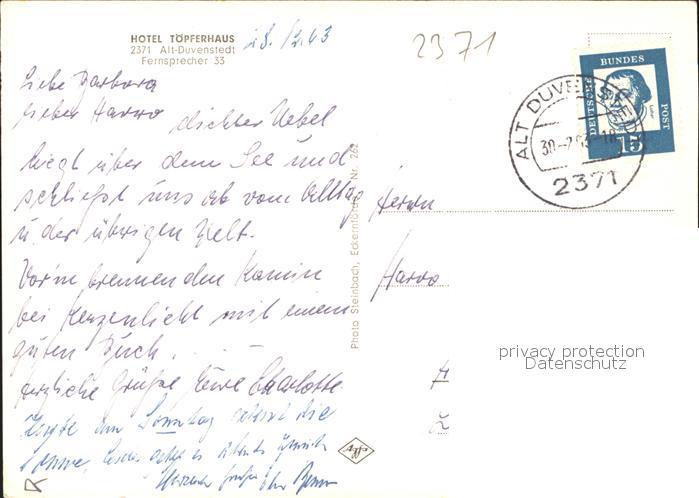 HOTEL TÖPFERHAUS
2371 Alt-Duvenstedt
Fernsprecher 33
28. 12. 63
2371
DEUTSCHE BUNDES POST
15
ALT DUVENSTEDT
2371
Liebe Barbara
Lieber Harro dichter Nebel
liegt über dem See und
schließt uns ab vom Alltag
u. der übrigen Welt.
Vor'm brennenden Kamin
bei Kerzenlicht mit einem
guten Buch. . . —
herzliche Grüße Eure Charlotte
Heute am Sonntag die
Sonne, es abends
Herzliche Grüße
Photo Steinbach, Eckernförde Nr. 262
Agfa
Herrn
Harro
privacy protection
Datenschutz